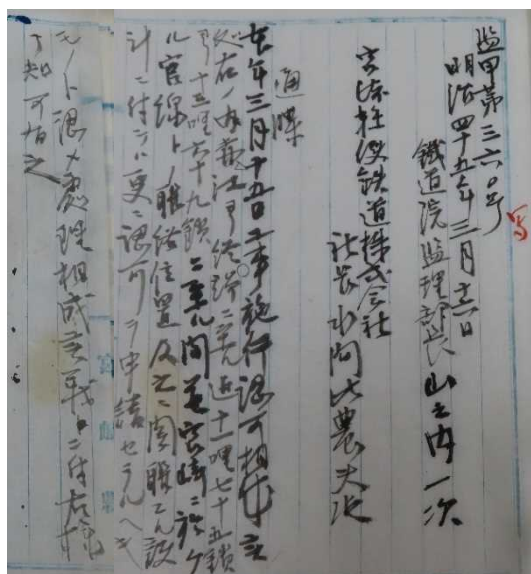 写
監甲第三六〇号
明治四十五年三月十六日
鐵道院監理部長山之内一次
宮崎軽便鉄道株式会社
社長水間此農夫殿
通牒
去年三月十五日工事施行認可相成
右ノ内 終端ニ至ル近十一哩七十五鎖
十三哩六十九鎖ニ至ル間並宮崎ニ於ケ
ル官線トノ聯絡位置及之ニ関聯スル設
計ニ付テハ更ニ認可ヲ申請セラルヘキ
モノト認メ処理相成 ニ付右様
了知可有之